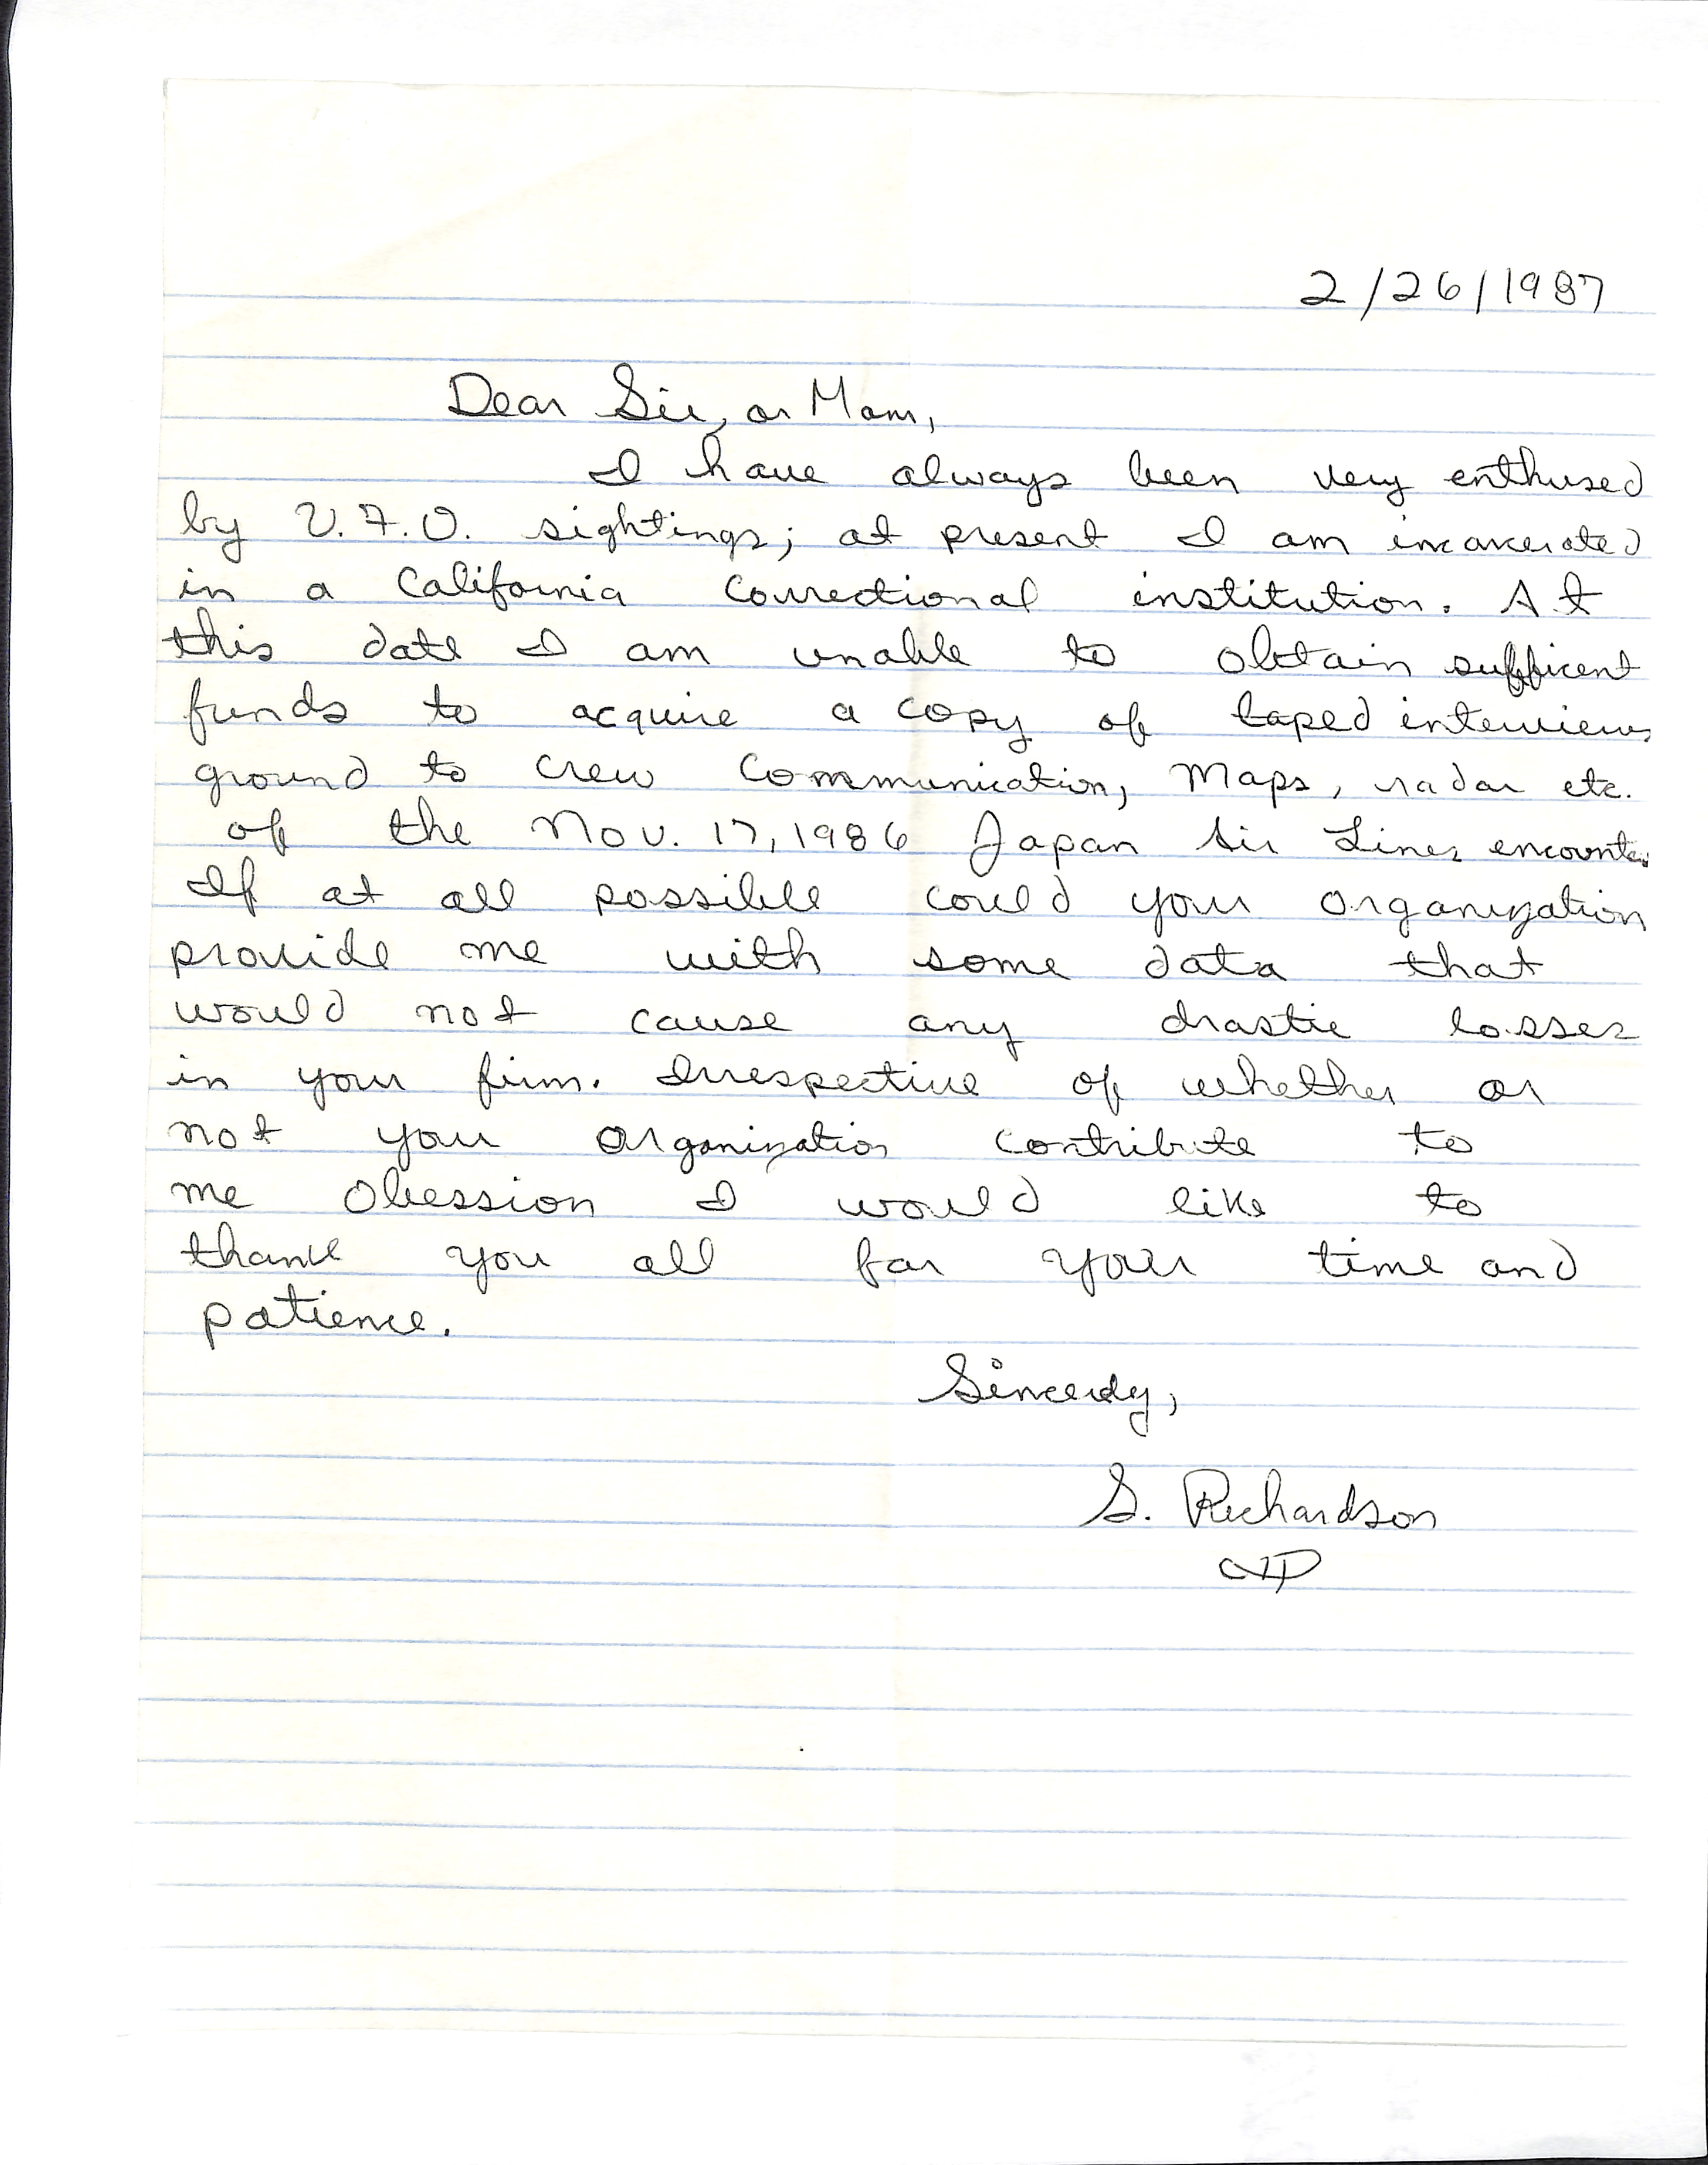 2/26/1987
Dear Sir, or Mam,
I have always been very enthused
by U.F.O. sightings; at present I am incarcerated
in a California Correctional institution. At
this date I am unable to obtain sufficent
funds to acquire a copy of taped interviews
ground to crew communication, Maps, radar etc.
of the Nov. 17, 1986 Japan Air Lines encounter.
If at all possible could your organization
provide me with some data that
would not cause any drastic losses
in your firm. Irrespective of whether or
not your organization contribute to
me obession I would like to
thank you all for your time and
patience.
Sincerely,
S. Richardson